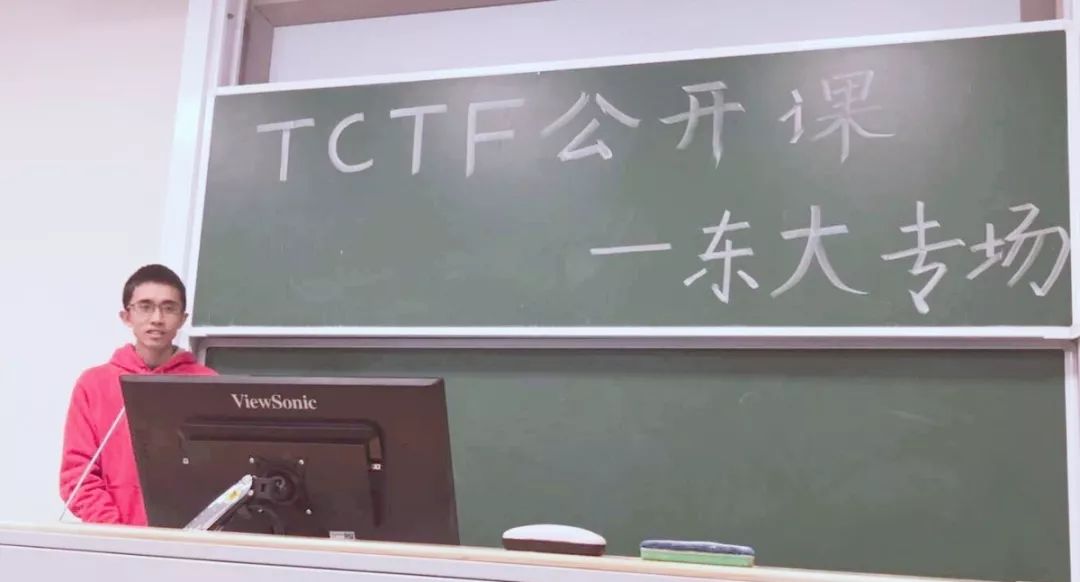 TCTF公开课
一东大专场
ViewSonic